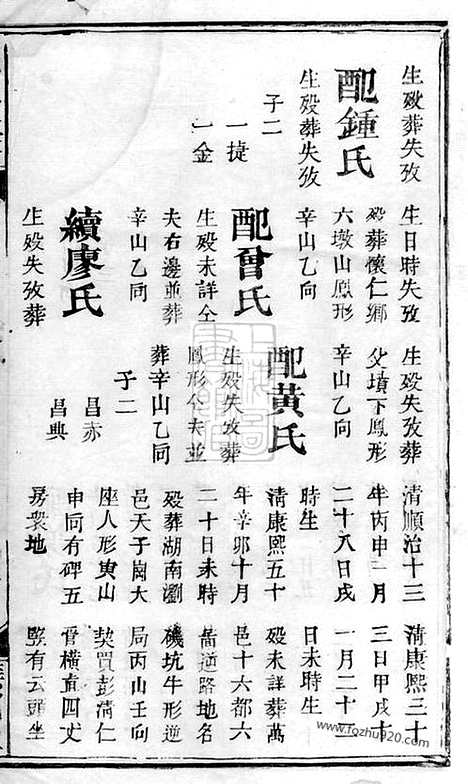 生歿葬失攷
配鍾氏
生歿葬失攷
子二
一捷
一金
生日時失攷
歿葬懷仁鄉
六墩山鳳形
辛山乙向
配曾氏
生歿未詳仝
夫右邊並葬
辛山乙向
續廖氏
生歿失攷葬
生歿失攷葬
父墳下鳳形
辛山乙向
配黃氏
生歿失攷葬
鳳形仝夫並
葬辛山乙向
子二
昌赤
昌典
清順治十三
年丙申一月
二十八日戌
時生
清康熙五十
年辛卯十月
二十日未時
歿葬湖南瀏
邑天子崗大
座人形寅山
申向有碑五
房衆地
清康熙三十
三日甲戌十
一月二十二
日未時生
歿未詳葬萬
邑十六都六
逆路地名
磯坑牛形逆
局丙山壬向
契買彭清仁
管橫直四丈
竪有云頭坐
www.fozhu920.com